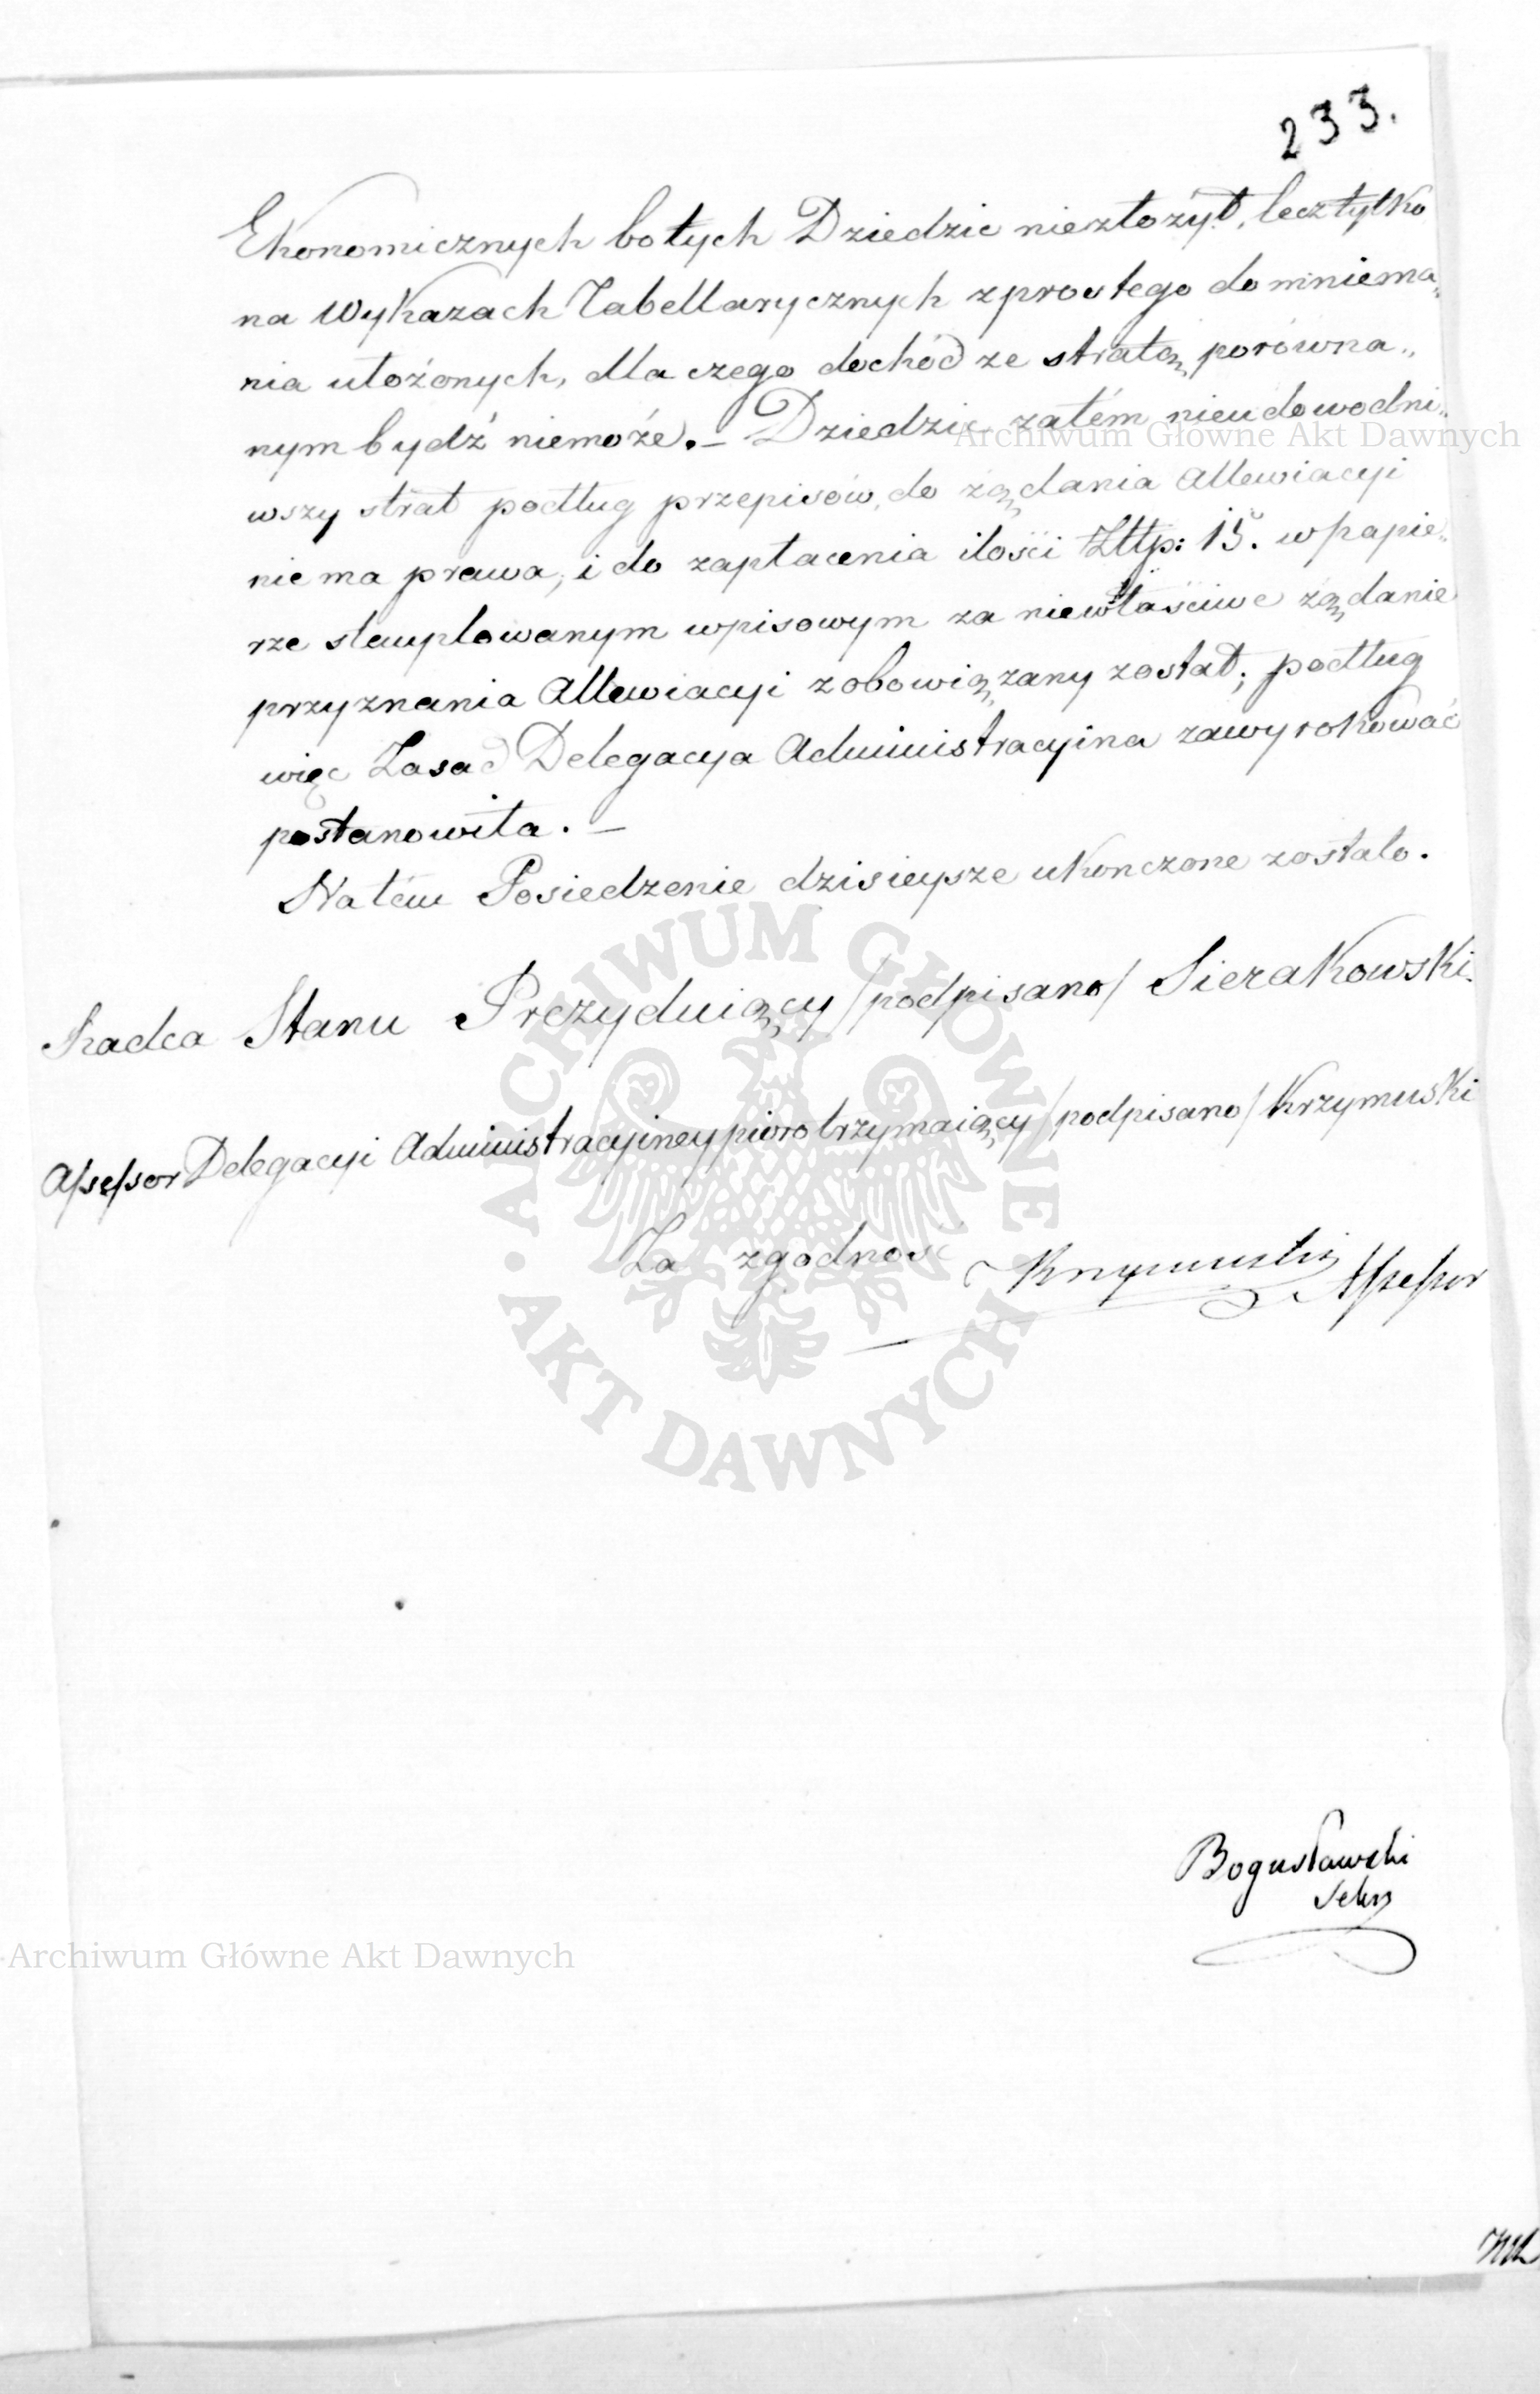 233.
Ekonomicznych bo tych Dziedzic niezłożył, lecz tylko
na Wykazach Tabellarycznych z prostego domniema„
nia ułożonych, dla czego dochód ze stratą porówna„
nym bydź niemoże. – Dziedzic zatém nieudowodni„
wszy strat podług przepisów, do żądania Allewiacyi
nie ma prawa, i do zapłacenia ilości Złłp: 15. w papie„
rze stemplowanym wpisowym za niewłaściwe żądanie
przyznania Allewiacyi zobowiązany został; podług
więc Zasad Delegacya Administracyina zawyrokować
postanowiła. –
Na tém Posiedzenie dzisieysze ukonczone zostało.
Radca Stanu Prezyduiący /podpisano/ Sierakowski.
Assessor Delegacyi Administracyiney pioro trzymaiący /podpisano/ Krzymuski
Za zgodność Krzymuski Assessor
Bogusławski
Sekr
Archiwum Główne Akt Dawnych
Archiwum Główne Akt Dawnych
ARCHIWUM GŁÓWNE · AKT DAWNYCH ·